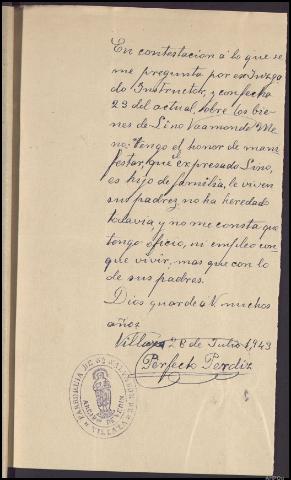 En contestación á lo que se
me pregunta por ese Juzga
do Instructor, y con fecha
23 del actual, sobre los bie-
nes de Lino Vaamonde Me
no: tengo el honor de mani
festar, que el expresado Lino,
es hijo de familia, le viven
sus padres, no ha heredado
todavia, y no me consta que
tenga oficio, ni empleo con
que vivir, mas que con lo
de sus padres.
Dios guarde a V. muchos
años
28 de Julio 1943
Perfecto Perdiz
PARROQUIA DE